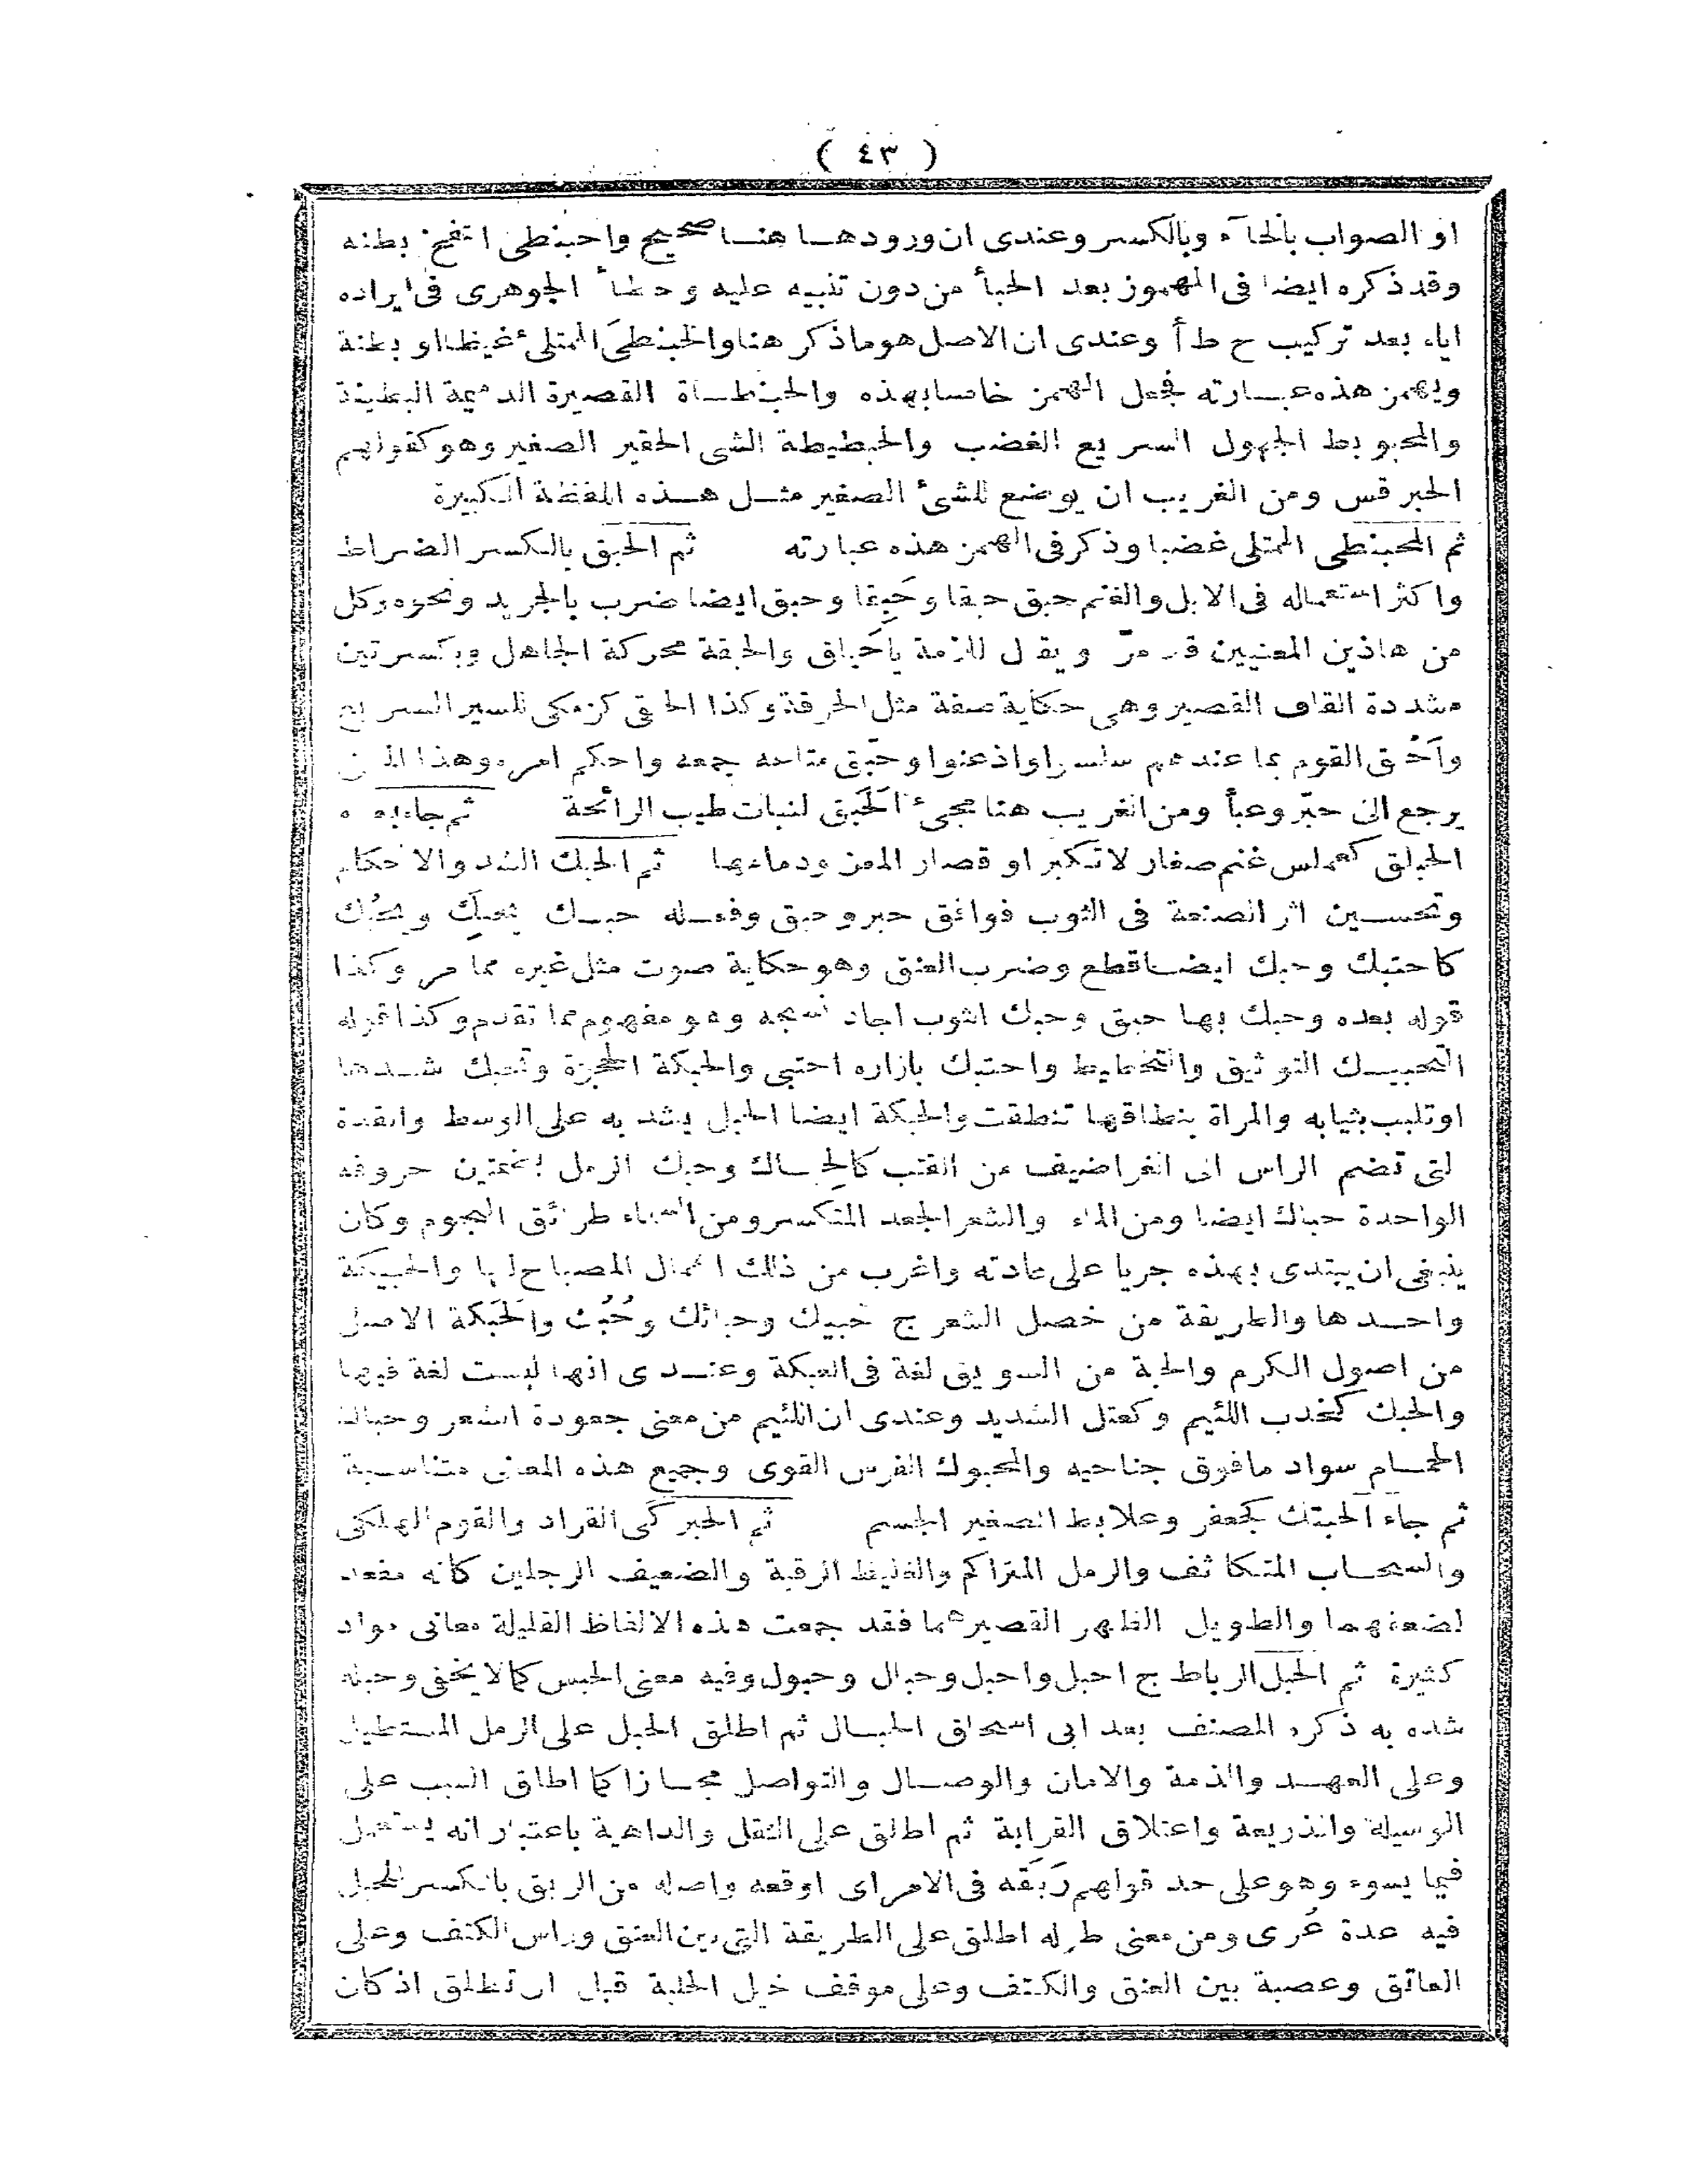 ( ٤٣ )
او الصواب بالخآء وبالكسر وعندى ان ورودها هنا صحيح واحبنطى انتفخ بطنه
وقد ذكره ايضا فى المهموز بعد الحبأ من دون تنبيه عليه وخطأ الجوهرى فى ايراده
اياه بعد تركيب ح ط أ وعندى ان الاصل هو ما ذكر هنا والحبنطى الممتلئ غيظا او بطنة
ويهمز هذه عبارته فجعل الهمز خاصا بهذه والحبنطاة القصيرة الدميمة البطينة
والمحبوبط الجهول السريع الغضب والحبطيطة الشى الحقير الصغير وهو كقولهم
الحبرقس ومن الغريب ان يوضع للشئ الصغير مثل هذه اللفظة الكبيرة
ثم المحبنطى الممتلى غضبا وذكر فى الهمز هذه عبارته ثم الحبق بالكسر الضراط
واكثر استعماله فى الابل والغنم حبق حبقا وحَبِقا وحبق ايضا ضرب بالجريد ونحوه وكل
من هاذين المعنيين قد مرّ ويقال للامة ياحَباق والحبقة محركة الجاهل وبكسرتين
مشددة القاف القصير وهى حكاية صفة مثل الحزقة وكذا الحبقى كزمكى للسير السريع
واَحْبق القوم بما عندهم سلسوا واذعنوا وحَبّق متاعه جمعه واحكم امره وهذا
يرجع الى حبّر وعبأ ومن الغريب هنا مجئ الحَبَق لنبات طيب الرائحة ثم جاء به
الحبلق كعملس غنم صغار لا تكبر او قصار المعز ودمامها ثم الحبك الشد والاحكام
وتحسين اثر الصنعة فى الثوب فوافق حبر وحبق وفعله حبك يحبِك ويحبُك
كاحتبك وحبك ايضا قطع وضرب العنق وهو حكاية صوت مثل غيره مما مر وكذا
قوله بعده وحبك بها حبق وحبك الثوب اجاد نسجه وهو مفهوم مما تقدم وكذا قوله
التحبيك التوثيق والتخطيط واحتبك بازاره احتبى والحبكة الحجزة وتحبك شدها
او تلبب بثيابه والمراة بنطاقها تنطقت والحبكة ايضا الحبل يشد به على الوسط والقدة
لتى تضم الراس الى الغراضيف من القتب كالحِباك وحبك الرمل بضمتين حروفه
الواحدة حباك ايضا ومن الماء والشعر الجعد المتكسر ومن السماء طرائق النجوم وكان
ينبغى ان يبتدى بهذه جريا على عادته واغرب من ذلك اهمال المصباح لها والحبيكة
واحدها والطريقة من خصل الشعر ج حَبيك وحبائك وحُبُك والحَبَكة الاصل
من اصول الكرم والحبة من السويق لغة فى العبكة وعندى انها ليست لغة فيها
والحبك كخدب اللئيم وكعتل الشديد وعندى ان اللئيم من معنى جعودة الشعر وحباك
الحمام سواد ما فوق جناحيه والمحبوك الفرس القوى وجميع هذه المعانى متناسبة
ثم جاء الحبتك كجعفر وعلابط الصغير الجسم ثم الحبركى القراد والقوم الهلكى
والسحاب المتكاثف والرمل المتراكم والغليظ الرقبة والضعيف الرجلين كانه مقعد
لضعفهما والطويل الظهر القصيرهما فقد جمعت هذه الالفاظ القليلة معانى مواد
كثيرة ثم الحبل الرباط ج احبل واحبل وحبال وحبول وفيه معنى الحبس كما لا يخفى وحبله
شده به ذكره المصنف بعد ابى اسحاق الحبال ثم اطلق الحبل على الرمل المستطيل
وعلى العهد والذمة والامان والوصال والتواصل مجازا كما اطلق السبب على
الوسيلة والذريعة واعتلاق القرابة ثم اطلق على الثقل والداهية باعتبار انه يستعمل
فيما يسوء وهو على حد قولهم رَبَقه فى الامر اى اوقعه واصله من الربق بالكسر للحبل
فيه عدة عُرى ومن معنى طوله اطلق على الطريقة التى بين العنق وراس الكتف وعلى
العاتق وعصبة بين العنق والكتف وعلى موقف خيل الحلبة قبل ان تطلق اذ كان